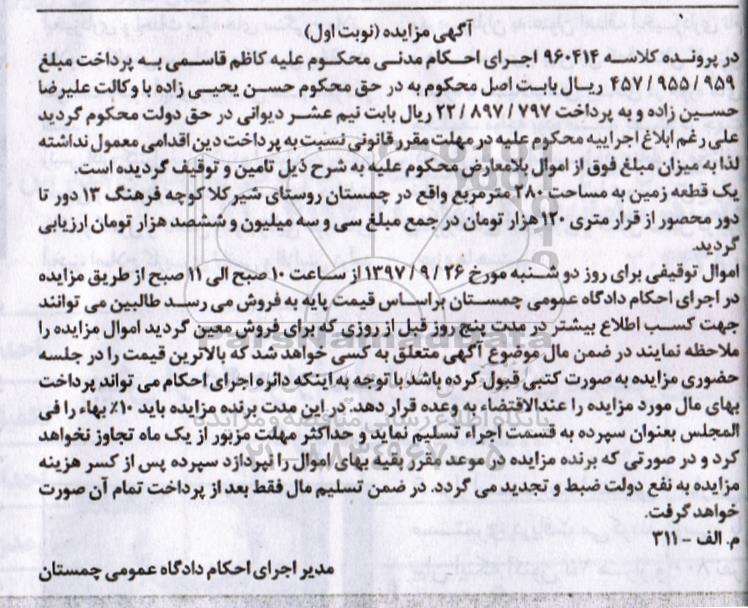 آگهی مزایده (نوبت اول)
در پرونده کلاسه ۹۶۰۴۱۴ اجرای احکام مدنی محکوم علیه کاظم قاسمی به پرداخت مبلغ
۴۵۷/۹۵۵/۹۵۹ ریال بابت اصل محکوم به در حق محکوم حسن یحیی زاده با وکالت علیرضا
حسین زاده و به پرداخت ۲۲/۸۹۷/۷۹۷ ریال بابت نیم عشر دیوانی در حق دولت محکوم گردید
علی رغم ابلاغ اجراییه محکوم علیه در مهلت مقرر قانونی نسبت به پرداخت دین اقدامی معمول نداشته
لذا به میزان مبلغ فوق از اموال بلامعارض محکوم علیه به شرح ذیل تامین و توقیف گردیده است.
یک قطعه زمین به مساحت ۲۸۰ مترمربع واقع در چمستان روستای شیر کلا کوچه فرهنگ ۱۳ دور تا
دور محصور از قرار متری ۱۲۰ هزار تومان در جمع مبلغ سی و سه میلیون و ششصد هزار تومان ارزیابی
گردید.
اموال توقیفی برای روز دو شنبه مورخ ۱۳۹۷/۹/۲۶ از ساعت ۱۰ صبح الی ۱۱ صبح از طریق مزایده
در اجرای احکام دادگاه عمومی چمستان براساس قیمت پایه به فروش می رسد طالبین می توانند
جهت کسب اطلاع بیشتر در مدت پنج روز قبل از روزی که برای فروش معین گردید اموال مزایده را
ملاحظه نمایند در ضمن مال موضوع آگهی متعلق به کسی خواهد شد که بالاترین قیمت را در جلسه
حضوری مزایده به صورت کتبی قبول کرده باشد با توجه به اینکه دائره اجرای احکام می تواند پرداخت
بهای مال مورد مزایده را عندالاقتضاء به وعده قرار دهد. در این مدت برنده مزایده باید ۱۰٪ بهاء را فی
المجلس بعنوان سپرده به قسمت اجراء تسلیم نماید و حداکثر مهلت مزبور از یک ماه تجاوز نخواهد
کرد و در صورتی که برنده مزایده در موعد مقرر بقیه بهای اموال را نپردازد سپرده پس از کسر هزینه
مزایده به نفع دولت ضبط و تجدید می گردد. در ضمن تسلیم مال فقط بعد از پرداخت تمام آن صورت
خواهد گرفت.
م. الف - ۳۱۱
مدیر اجرای احکام دادگاه عمومی چمستان
ParsNamadData
پایگاه اطلاع رسانی مناقصه و مزایده